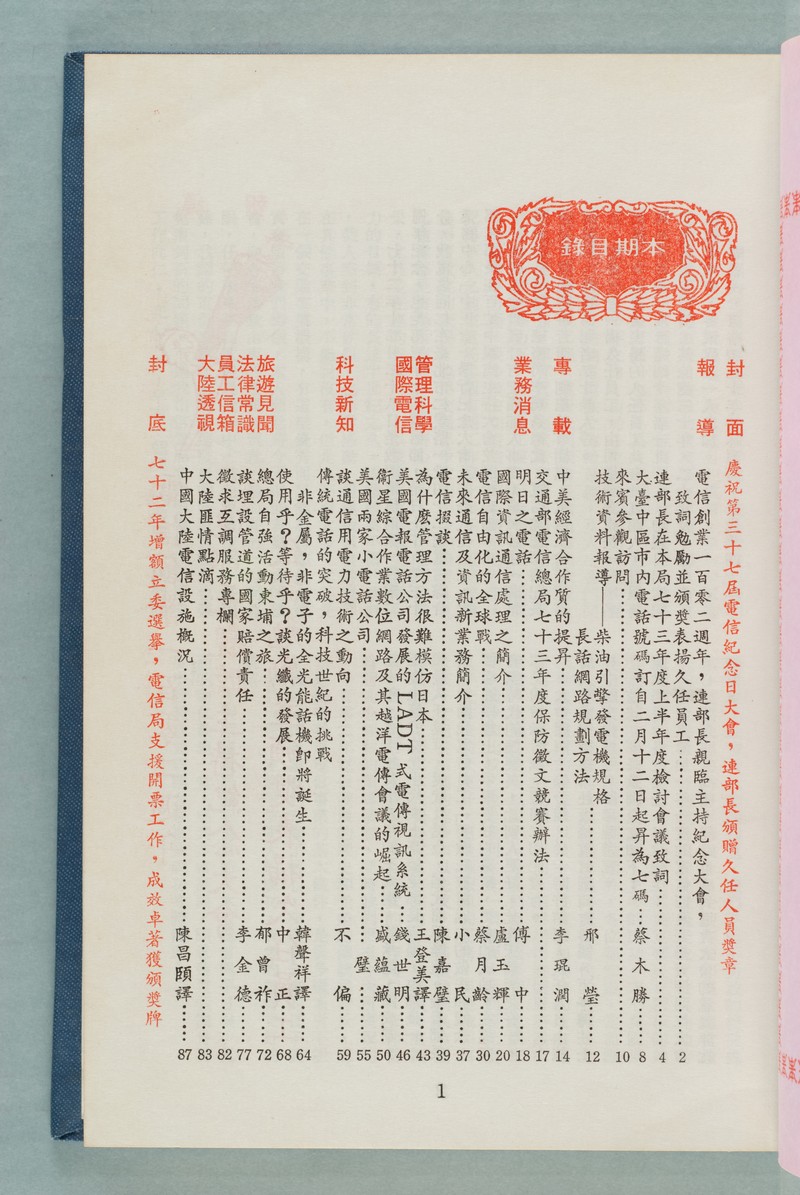 本期目錄
封面
慶祝第三十七屆電信紀念日大會,連部長頒贈久任人員獎章
報導
電信創業一百零二週年,連部長親臨主持紀念大會,
致詞勉勵並頒獎表揚久任員工……2
連部長在本局七十三年度上半年度檢討會議致詞……4
大臺中區市內電話號碼訂自二月十二日起昇為七碼…蔡木勝……8
來賓參觀訪問……10
技術資料報導——柴油引擎發電機規格
長話網路規劃方法……邢瑩……12
專載
中美經濟合作質的提昇……李琨潤……14
交通部電信總局七十三年度保防徵文競賽辦法……17
業務消息
明日之電話……傅中……18
國際資訊通信處理之簡介……盧玉輝……20
電信自由化的全球戰……蔡月齡……30
未來通信及資訊新業務簡介……小民……37
電信掇談……陳嘉璧……39
管理科學
為什麼管理方法很難模仿日本……王登美譯……43
國際電信
美國電報電話公司發展的LADT式電傳視訊系統…錢世明……46
衛星綜合作業數位網路及其越洋電傳會議的崛起…盛蘊藏……50
美國兩家小電話公司……璧……55
科技新知
談通信用電力技術之動向……不偏……59
傳統電話的突破,科技世紀的挑戰
非金屬,非電子的全光能話機即將誕生……韓聲祥譯……64
使用乎?等待乎?談光纖的發展……中正……68
旅遊見聞
總局自強活動東埔之旅……郁曾祚……72
法律常識
談埋設管道的國家賠償責任……李金德……77
員工信箱
徵求互調服務專欄……82
大陸透視
大陸匪情點滴……83
中國大陸電信設施概況……陳昌頤譯……87
封底
七十二年增額立委選舉,電信局支援開票工作,成效卓著獲頒獎牌
1